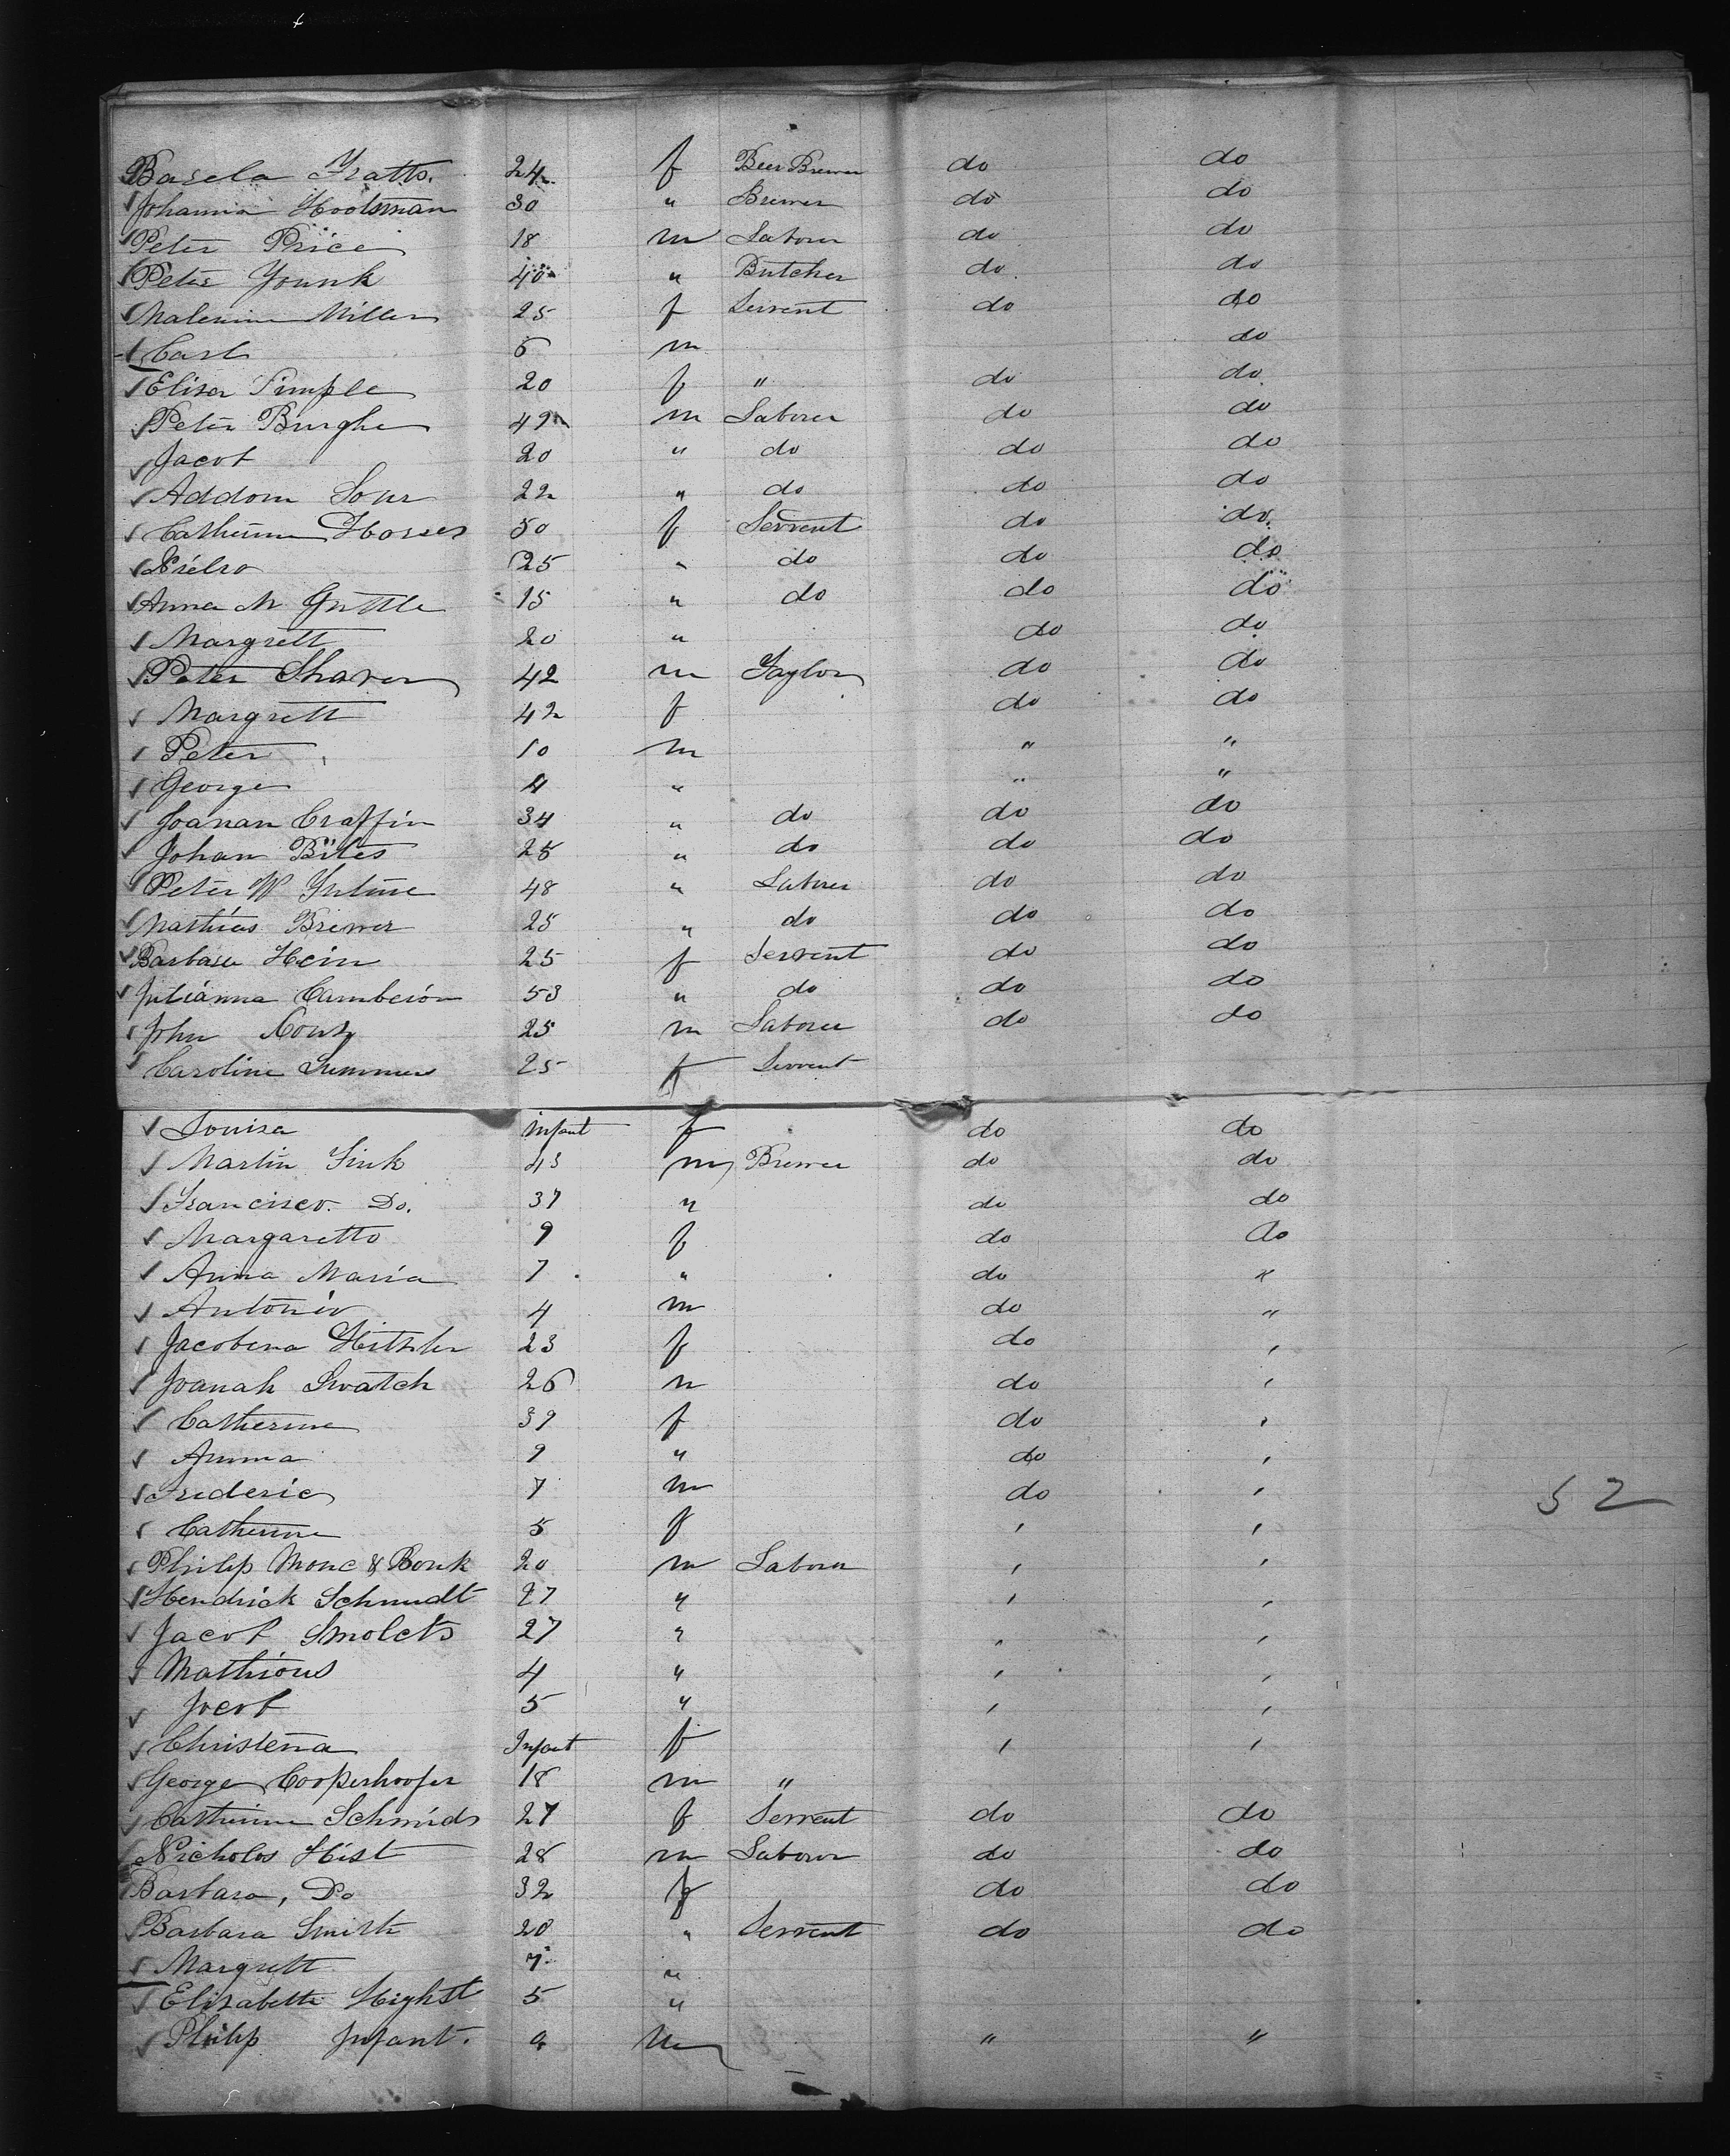 Basela Fratts. 24 f Beer Brewer do do
Johanna Hoolsman 30 " Brewer do do
Peter Price 18 m Laborer do do
Peter Younk 40 " Butcher do do
Miller 25 f Servent do do
Carl 6 m do
Elisa Pimple 20 f " do do
Peter Burghe 49 m Laborer do do
Jacob 20 " do do do
Addom Sour 22 " do do do
Catherina Horses 50 f Servent do do
25 " do do do
Anna M Gruttle 15 " do do do
Margrett 20 " do do
Peter Shaver 42 m Taylor do do
Margrett 42 f do do
Peter 10 m " "
George 4 " " "
Joanan Craffin 34 " do do do
Johan Bites 25 " do do do
Peter W 48 " Laborer do do
Mathias Brewer 25 " do do do
Barbara Hein 25 f Servent do do
Julianna Cambeion 53 " do do do
John Kontz 25 m Laborer do do
Caroline Summers 25 f Servent
Louisa Infant f do do
Martin Fink 43 m Brewer do do
Francisco. Do. 37 " do do
Margaretto 9 f do do
Anna Maria 7 " do "
Antonio 4 m do "
Jacobena Hitzler 23 f do "
Joanah Swatch 26 m do "
Catherine 39 f do "
Amma 9 " do "
Frederic 7 m do "
Catherine 5 f " "
Philip Monc & Bonk 20 m Laborer " "
Hendrick Schmudt 27 " " "
Jacob Smolets 27 " " "
Mathious 4 " " "
Jocob 5 " " "
Christena Infant f " "
George Coopershoofer 18 m "
Catherine Schmids 27 f Servent do do
Nicholos Hist 28 m Laborer do do
Barbara, Do 32 f do do
Barbara Smith 20 " Servent do do
Margrett 7 "
Elizabeth Highst 5 "
Philip Infant. a m " "
52